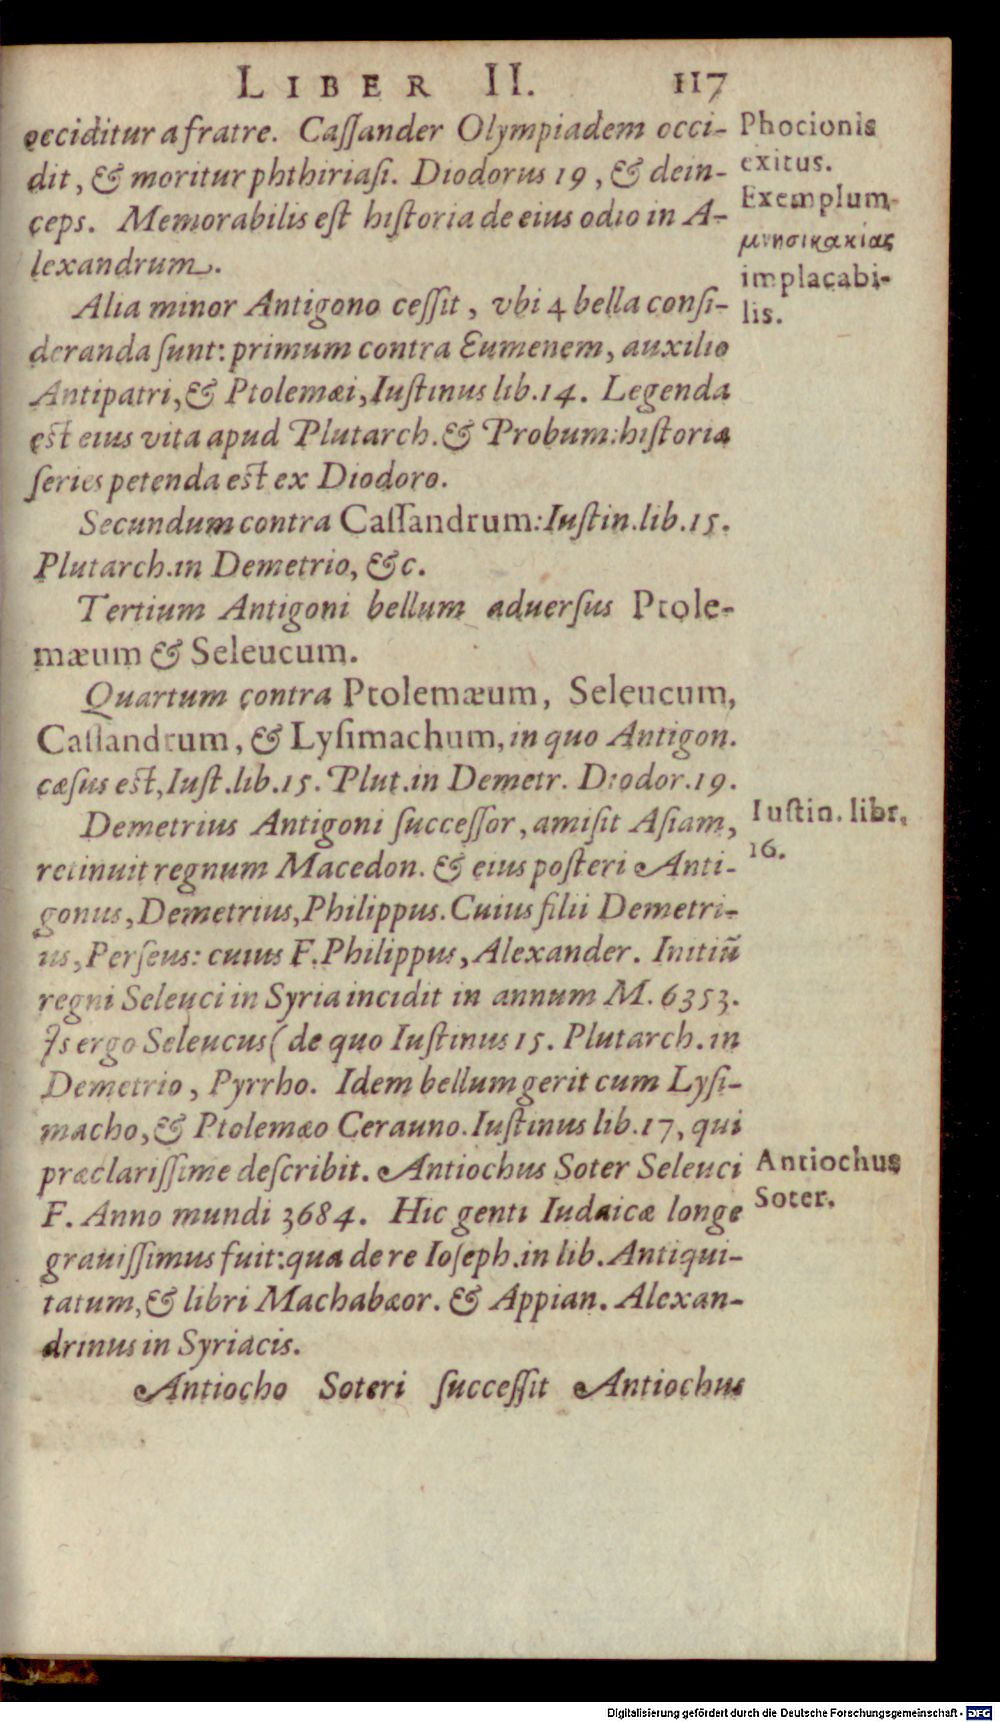 LIBER II. 117
occiditur a fratre. Caſſander Olympiadem occi-
dit, & moritur phthiriaſi. Diodorus 19, & dein-
ceps. Memorabilis eſt hiſtoria de eius odio in A-
lexandrum.
Phocionis
exitus.
Exemplum
μνησικακίας
implacabi-
lis.
Alia minor Antigono ceſſit, vbi 4 bella conſi-
deranda ſunt: primum contra Eumenem, auxilio
Antipatri, & Ptolemæi, Iuſtinus lib. 14. Legenda
eſt eius vita apud Plutarch. & Probum: hiſtoria
ſeries petenda eſt ex Diodoro.
Secundum contra Caſſandrum: Iuſtin. lib. 15.
Plutarch. in Demetrio, &c.
Tertium Antigoni bellum aduerſus Ptole-
mæum & Seleucum.
Quartum contra Ptolemæum, Seleucum,
Caſſandrum, & Lyſimachum, in quo Antigon.
cæſus eſt, Iuſt. lib. 15. Plut. in Demetr. Diodor. 19.
Demetrius Antigoni ſucceſſor, amiſit Aſiam,
retinuit regnum Macedon. & eius poſteri Anti-
gonus, Demetrius, Philippus. Cuius filii Demetri-
us, Perſeus: cuius F. Philippus, Alexander. Initiũ
regni Seleuci in Syria incidit in annum M. 6353.
Is ergo Seleucus ( de quo Iuſtinus 15. Plutarch. in
Demetrio, Pyrrho. Idem bellum gerit cum Lyſi-
macho, & Ptolemæo Cerauno. Iuſtinus lib. 17, qui
præclariſſime deſcribit. Antiochus Soter Seleuci
F. Anno mundi 3684. Hic genti Iudaicæ longe
grauiſſimus fuit: qua de re Ioſeph. in lib. Antiqui-
tatum, & libri Machabæor. & Appian. Alexan-
drinus in Syriacis.
Iuſtin. libr.
16.
Antiochus
Soter.
Antiocho Soteri ſucceſſit Antiochus
Digitalisierung gefördert durch die Deutsche Forschungsgemeinschaft - DFG